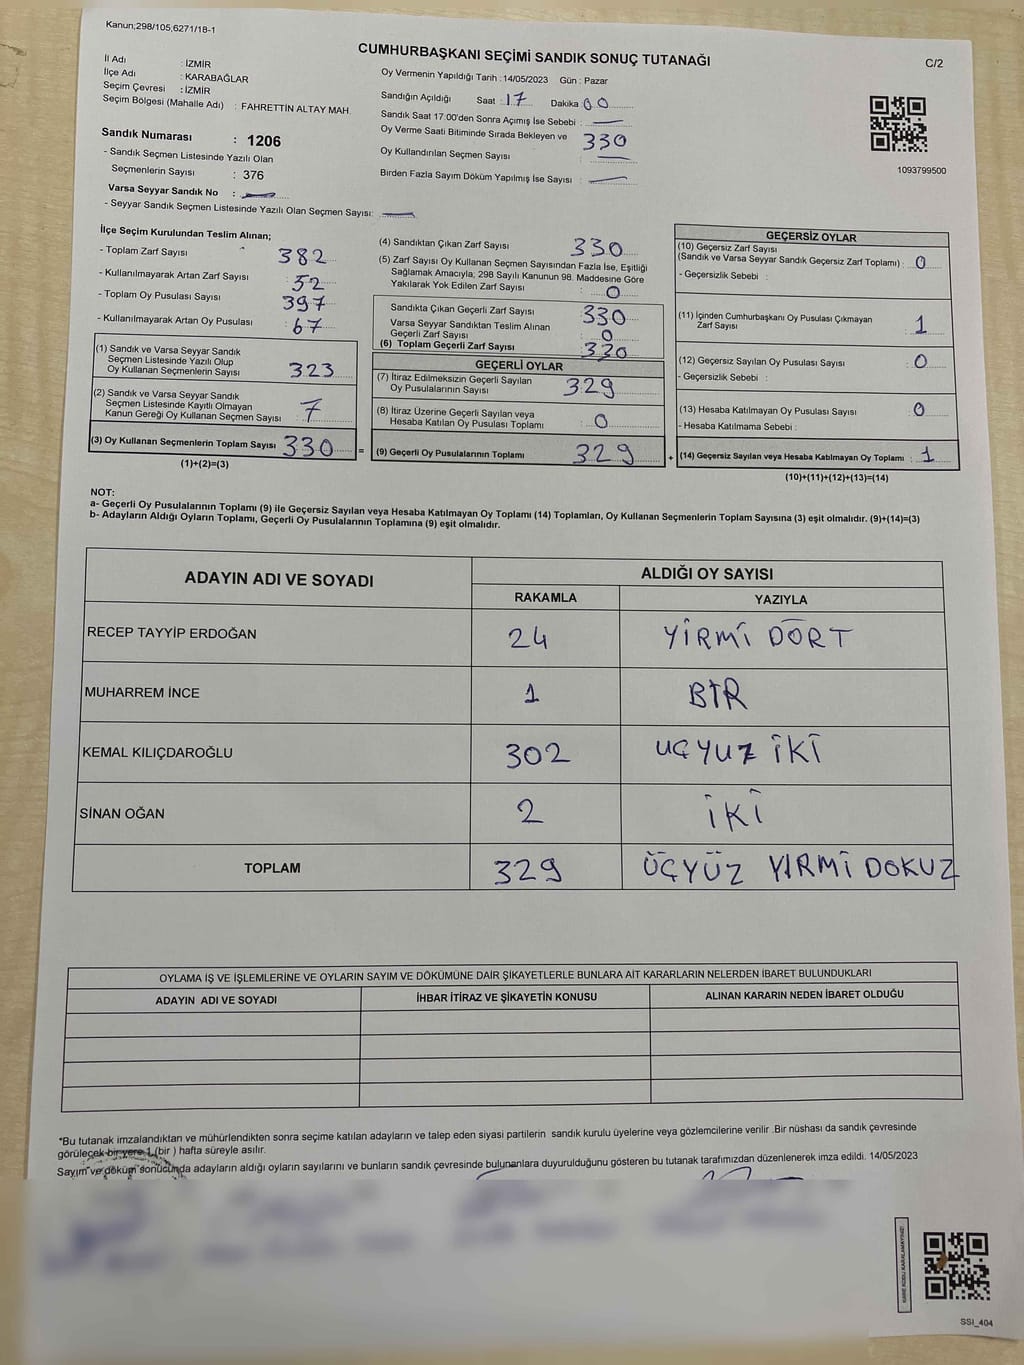 Kanun;298/105,6271/18-1
CUMHURBAŞKANI SEÇİMİ SANDIK SONUÇ TUTANAĞI
C/2
İl Adı : İZMİR
İlçe Adı : KARABAĞLAR
Seçim Çevresi : İZMİR
Seçim Bölgesi (Mahalle Adı) : FAHRETTİN ALTAY MAH.
Oy Vermenin Yapıldığı Tarih : 14/05/2023 Gün : Pazar
Sandığın Açıldığı Saat : 17 Dakika 00
Sandık Saat 17:00'den Sonra Açımış İse Sebebi :
Oy Verme Saati Bitiminde Sırada Bekleyen ve 330
Oy Kullandırılan Seçmen Sayısı :
Birden Fazla Sayım Döküm Yapılmış İse Sayısı :
1093799500
Sandık Numarası : 1206
- Sandık Seçmen Listesinde Yazılı Olan
Seçmenlerin Sayısı : 376
Varsa Seyyar Sandık No :
- Seyyar Sandık Seçmen Listesinde Yazılı Olan Seçmen Sayısı:
İlçe Seçim Kurulundan Teslim Alınan;
- Toplam Zarf Sayısı : 382
- Kullanılmayarak Artan Zarf Sayısı : 52
- Toplam Oy Pusulası Sayısı : 397
- Kullanılmayarak Artan Oy Pusulası : 67
(1) Sandık ve Varsa Seyyar Sandık
Seçmen Listesinde Yazılı Olup
Oy Kullanan Seçmenlerin Sayısı : 323
(2) Sandık ve Varsa Seyyar Sandık
Seçmen Listesinde Kayıtlı Olmayan
Kanun Gereği Oy Kullanan Seçmen Sayısı : 7
(3) Oy Kullanan Seçmenlerin Toplam Sayısı 330 =
(1)+(2)=(3)
(4) Sandıktan Çıkan Zarf Sayısı 330
(5) Zarf Sayısı Oy Kullanan Seçmen Sayısından Fazla İse, Eşitliği
Sağlamak Amacıyla; 298 Sayılı Kanunun 98. Maddesine Göre
Yakılarak Yok Edilen Zarf Sayısı : 0
Sandıkta Çıkan Geçerli Zarf Sayısı 330
Varsa Seyyar Sandıktan Teslim Alınan
Geçerli Zarf Sayısı : 0
(6) Toplam Geçerli Zarf Sayısı 330
GEÇERLİ OYLAR
(7) İtiraz Edilmeksizin Geçerli Sayılan
Oy Pusulalarının Sayısı 329
(8) İtiraz Üzerine Geçerli Sayılan veya
Hesaba Katılan Oy Pusulası Toplamı : 0
(9) Geçerli Oy Pusulalarının Toplamı 329 +
GEÇERSİZ OYLAR
(10) Geçersiz Zarf Sayısı
(Sandık ve Varsa Seyyar Sandık Geçersiz Zarf Toplamı) : 0
- Geçersizlik Sebebi :
(11) İçinden Cumhurbaşkanı Oy Pusulası Çıkmayan
Zarf Sayısı : 1
(12) Geçersiz Sayılan Oy Pusulası Sayısı : 0
- Geçersizlik Sebebi :
(13) Hesaba Katılmayan Oy Pusulası Sayısı : 0
- Hesaba Katılmama Sebebi :
(14) Geçersiz Sayılan veya Hesaba Katılmayan Oy Toplamı : 1
(10)+(11)+(12)+(13)=(14)
NOT:
a- Geçerli Oy Pusulalarının Toplamı (9) ile Geçersiz Sayılan veya Hesaba Katılmayan Oy Toplamı (14) Toplamları, Oy Kullanan Seçmenlerin Toplam Sayısına (3) eşit olmalıdır. (9)+(14)=(3)
b- Adayların Aldığı Oyların Toplamı, Geçerli Oy Pusulalarının Toplamına (9) eşit olmalıdır.
ADAYIN ADI VE SOYADI ALDIĞI OY SAYISI
RAKAMLA YAZIYLA
RECEP TAYYİP ERDOĞAN 24 YİRMİ DÖRT
MUHARREM İNCE 1 BİR
KEMAL KILIÇDAROĞLU 302 UÇYUZ İKİ
SİNAN OĞAN 2 İKİ
TOPLAM 329 ÜÇYÜZ YIRMİ DOKUZ
OYLAMA İŞ VE İŞLEMLERİNE VE OYLARIN SAYIM VE DÖKÜMÜNE DAİR ŞİKAYETLERLE BUNLARA AİT KARARLARIN NELERDEN İBARET BULUNDUKLARI
ADAYIN ADI VE SOYADI İHBAR İTİRAZ VE ŞİKAYETİN KONUSU ALINAN KARARIN NEDEN İBARET OLDUĞU
*Bu tutanak imzalandıktan ve mühürlendikten sonra seçime katılan adayların ve talep eden siyasi partilerin sandık kurulu üyelerine veya gözlemcilerine verilir .Bir nüshası da sandık çevresinde
görülecek bir yere 1 (bir ) hafta süreyle asılır.
Sayım ve döküm sonucunda adayların aldığı oyların sayılarını ve bunların sandık çevresinde bulunanlara duyurulduğunu gösteren bu tutanak tarafımızdan düzenlenerek imza edildi. 14/05/2023
KARE KODU KARALAMAYINIZ!
SSI_404